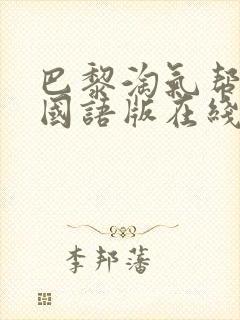 巴黎淘氣幫
國語版在綫
李邦藩